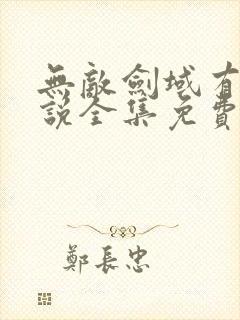 無敵劍域有
說全集免費
鄭長忠